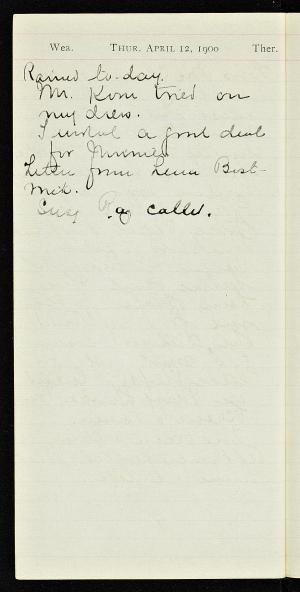 Wea. THUR. APRIL 12, 1900 Ther.
Rained to-day.
Mr. Korn tried on
my dress.
I a good deal
for
Letter from Lena Best-
Mik.
Ray called.